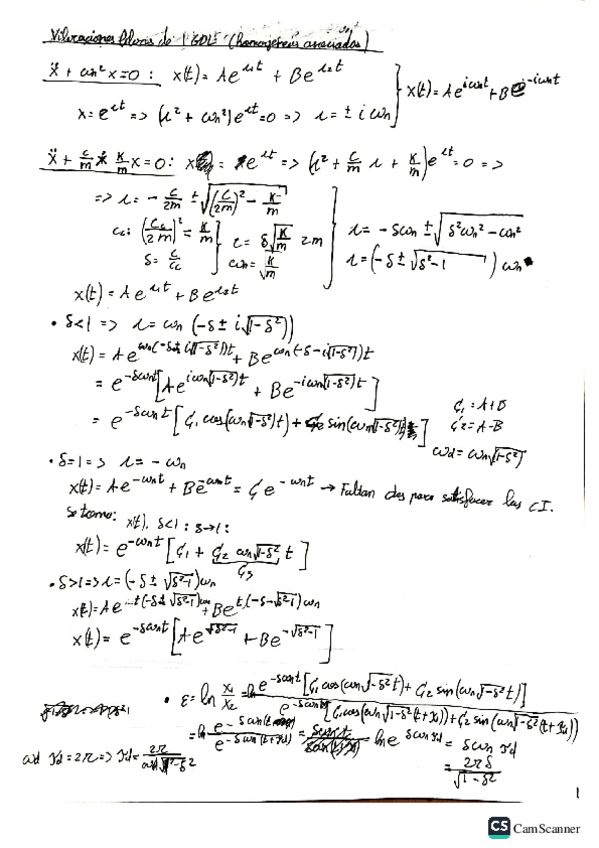 Vibraciones libres de 1 GDL (homogéneas asociadas)
ẍ + ωn² x = 0 : x(t) = A e^{r1t} + B e^{r2t} } x(t) = A e^{iωnt} + B e^{-iωnt}
x = e^{rt} => (r² + ωn²) e^{rt} = 0 => r = ± i ωn
ẍ + c/m ẋ + k/m x = 0 : x = e^{rt} => (r² + c/m r + k/m) e^{rt} = 0 =>
=> r = - c/2m ± √((c/2m)² - k/m)
cc: (cc/2m)² = k/m } c = δ √(k/m) 2m } r = -δωn ± √(δ²ωn² - ωn²)
δ = c/cc ωn = √(k/m) r = (-δ ± √(δ²-1)) ωn
x(t) = A e^{r1t} + B e^{r2t}
• δ<1 => r = ωn (-δ ± i √(1-δ²))
x(t) = A e^{ωn(-δ+i√(1-δ²))t} + B e^{ωn(-δ-i√(1-δ²))t}
= e^{-δωnt} [A e^{iωn√(1-δ²)t} + B e^{-iωn√(1-δ²)t}]
= e^{-δωnt} [C1 cos(ωn√(1-δ²)t) + C2 sin(ωn√(1-δ²)t)]
C1 = A+B
C2 = A-B
ωd = ωn√(1-δ²)
• δ=1 => r = -ωn
x(t) = A e^{-ωnt} + B e^{-ωnt} = C e^{-ωnt} → Faltan ctes para satisfacer las CI.
Se toma: x(t), δ<1 : δ→1 :
x(t) = e^{-ωnt} [C1 + C2 ωn√(1-δ²) t]
C3
• δ>1 => r = (-δ ± √(δ²-1)) ωn
x(t) = e^{-δωnt} [A e^{√(δ²-1)} + B e^{-√(δ²-1)}]
• ε = ln x1/x2 = ln e^{-δωnt} [C1 cos(ωn√(1-δ²)t) + C2 sin(ωn√(1-δ²)t)] / e^{-δωn(t+τd)} [C1 cos(ωn√(1-δ²)(t+τd)) + C2 sin(ωn√(1-δ²)(t+τd))]
= ln e^{-δωnt} / e^{-δωn(t+τd)} = ln e^{δωnτd} = δωnτd
ωd τd = 2π => τd = 2π / ωn√(1-δ²)
= 2πδ / √(1-δ²)
1
CS CamScanner